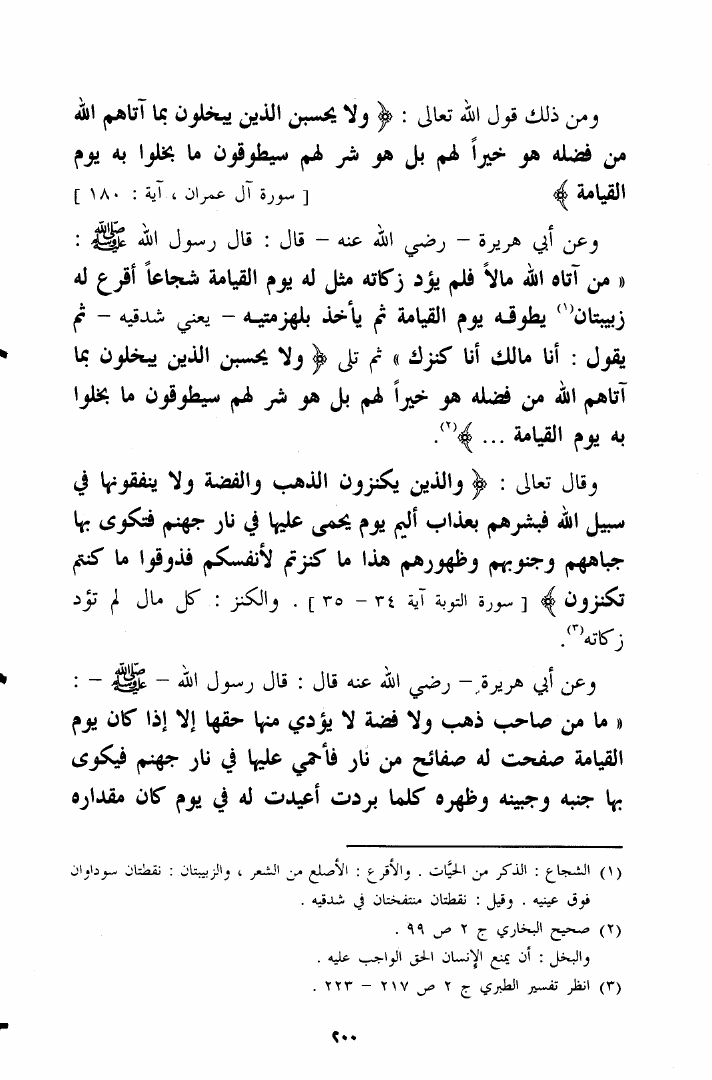 ومن ذلك قول الله تعالى : ﴿ ولا يحسبن الذين يبخلون بما آتاهم الله
من فضله هو خيراً لهم بل هو شر لهم سيطوقون ما بخلوا به يوم
القيامة ﴾ [ سورة آل عمران ، آية : ١٨٠ ]
وعن أبي هريرة – رضي الله عنه – قال : قال رسول الله ﷺ :
« من آتاه الله مالاً فلم يؤد زكاته مثل له يوم القيامة شجاعاً أقرع له
زبيبتان(١) يطوقه يوم القيامة ثم يأخذ بلهزمتيه – يعني شدقيه – ثم
يقول : أنا مالك أنا كنزك » ثم تلى ﴿ ولا يحسبن الذين يبخلون بما
آتاهم الله من فضله هو خيراً لهم بل هو شر لهم سيطوقون ما بخلوا
به يوم القيامة ... ﴾(٢).
وقال تعالى : ﴿ والذين يكنزون الذهب والفضة ولا ينفقونها في
سبيل الله فبشرهم بعذاب أليم يوم يحمى عليها في نار جهنم فتكوى بها
جباههم وجنوبهم وظهورهم هذا ما كنزتم لأنفسكم فذوقوا ما كنتم
تكنزون ﴾ [ سورة التوبة آية ٣٤ – ٣٥ ] . والكنز : كل مال لم تؤد
زكاته(٣).
وعن أبي هريرة – رضي الله عنه قال : قال رسول الله – ﷺ – :
« ما من صاحب ذهب ولا فضة لا يؤدي منها حقها إلا إذا كان يوم
القيامة صفحت له صفائح من نار فأحمي عليها في نار جهنم فيكوى
بها جنبه وجبينه وظهره كلما بردت أعيدت له في يوم كان مقداره
(١) الشجاع : الذكر من الحيَّات . والأقرع : الأصلع من الشعر ، والزبيبتان : نقطتان سوداوان
فوق عينيه . وقيل : نقطتان منتفختان في شدقيه .
(٢) صحيح البخاري ج ٢ ص ٩٩ .
والبخل : أن يمنع الإنسان الحق الواجب عليه .
(٣) انظر تفسير الطبري ج ٢ ص ٢١٧ – ٢٢٣ .
٢٠٠